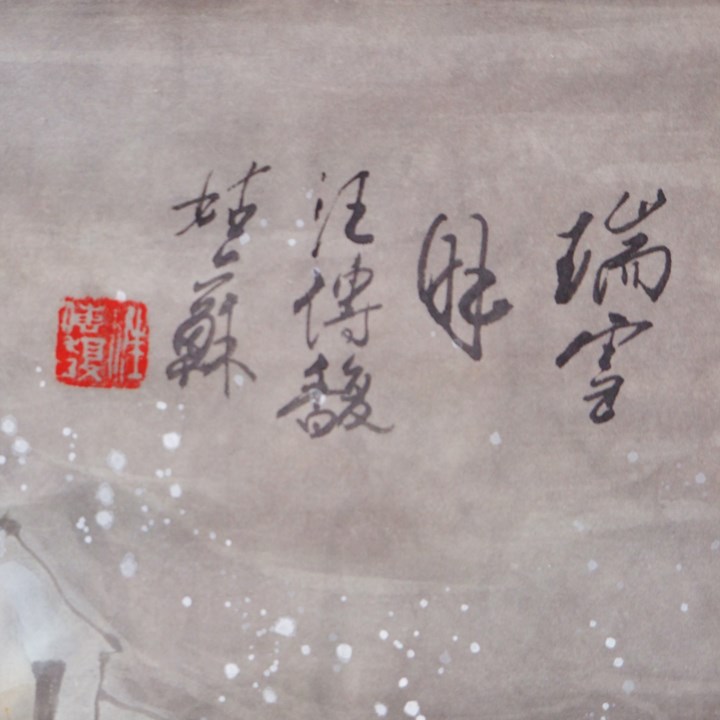 瑞雪
汪傳馥
姑蘇
汪
傳馥